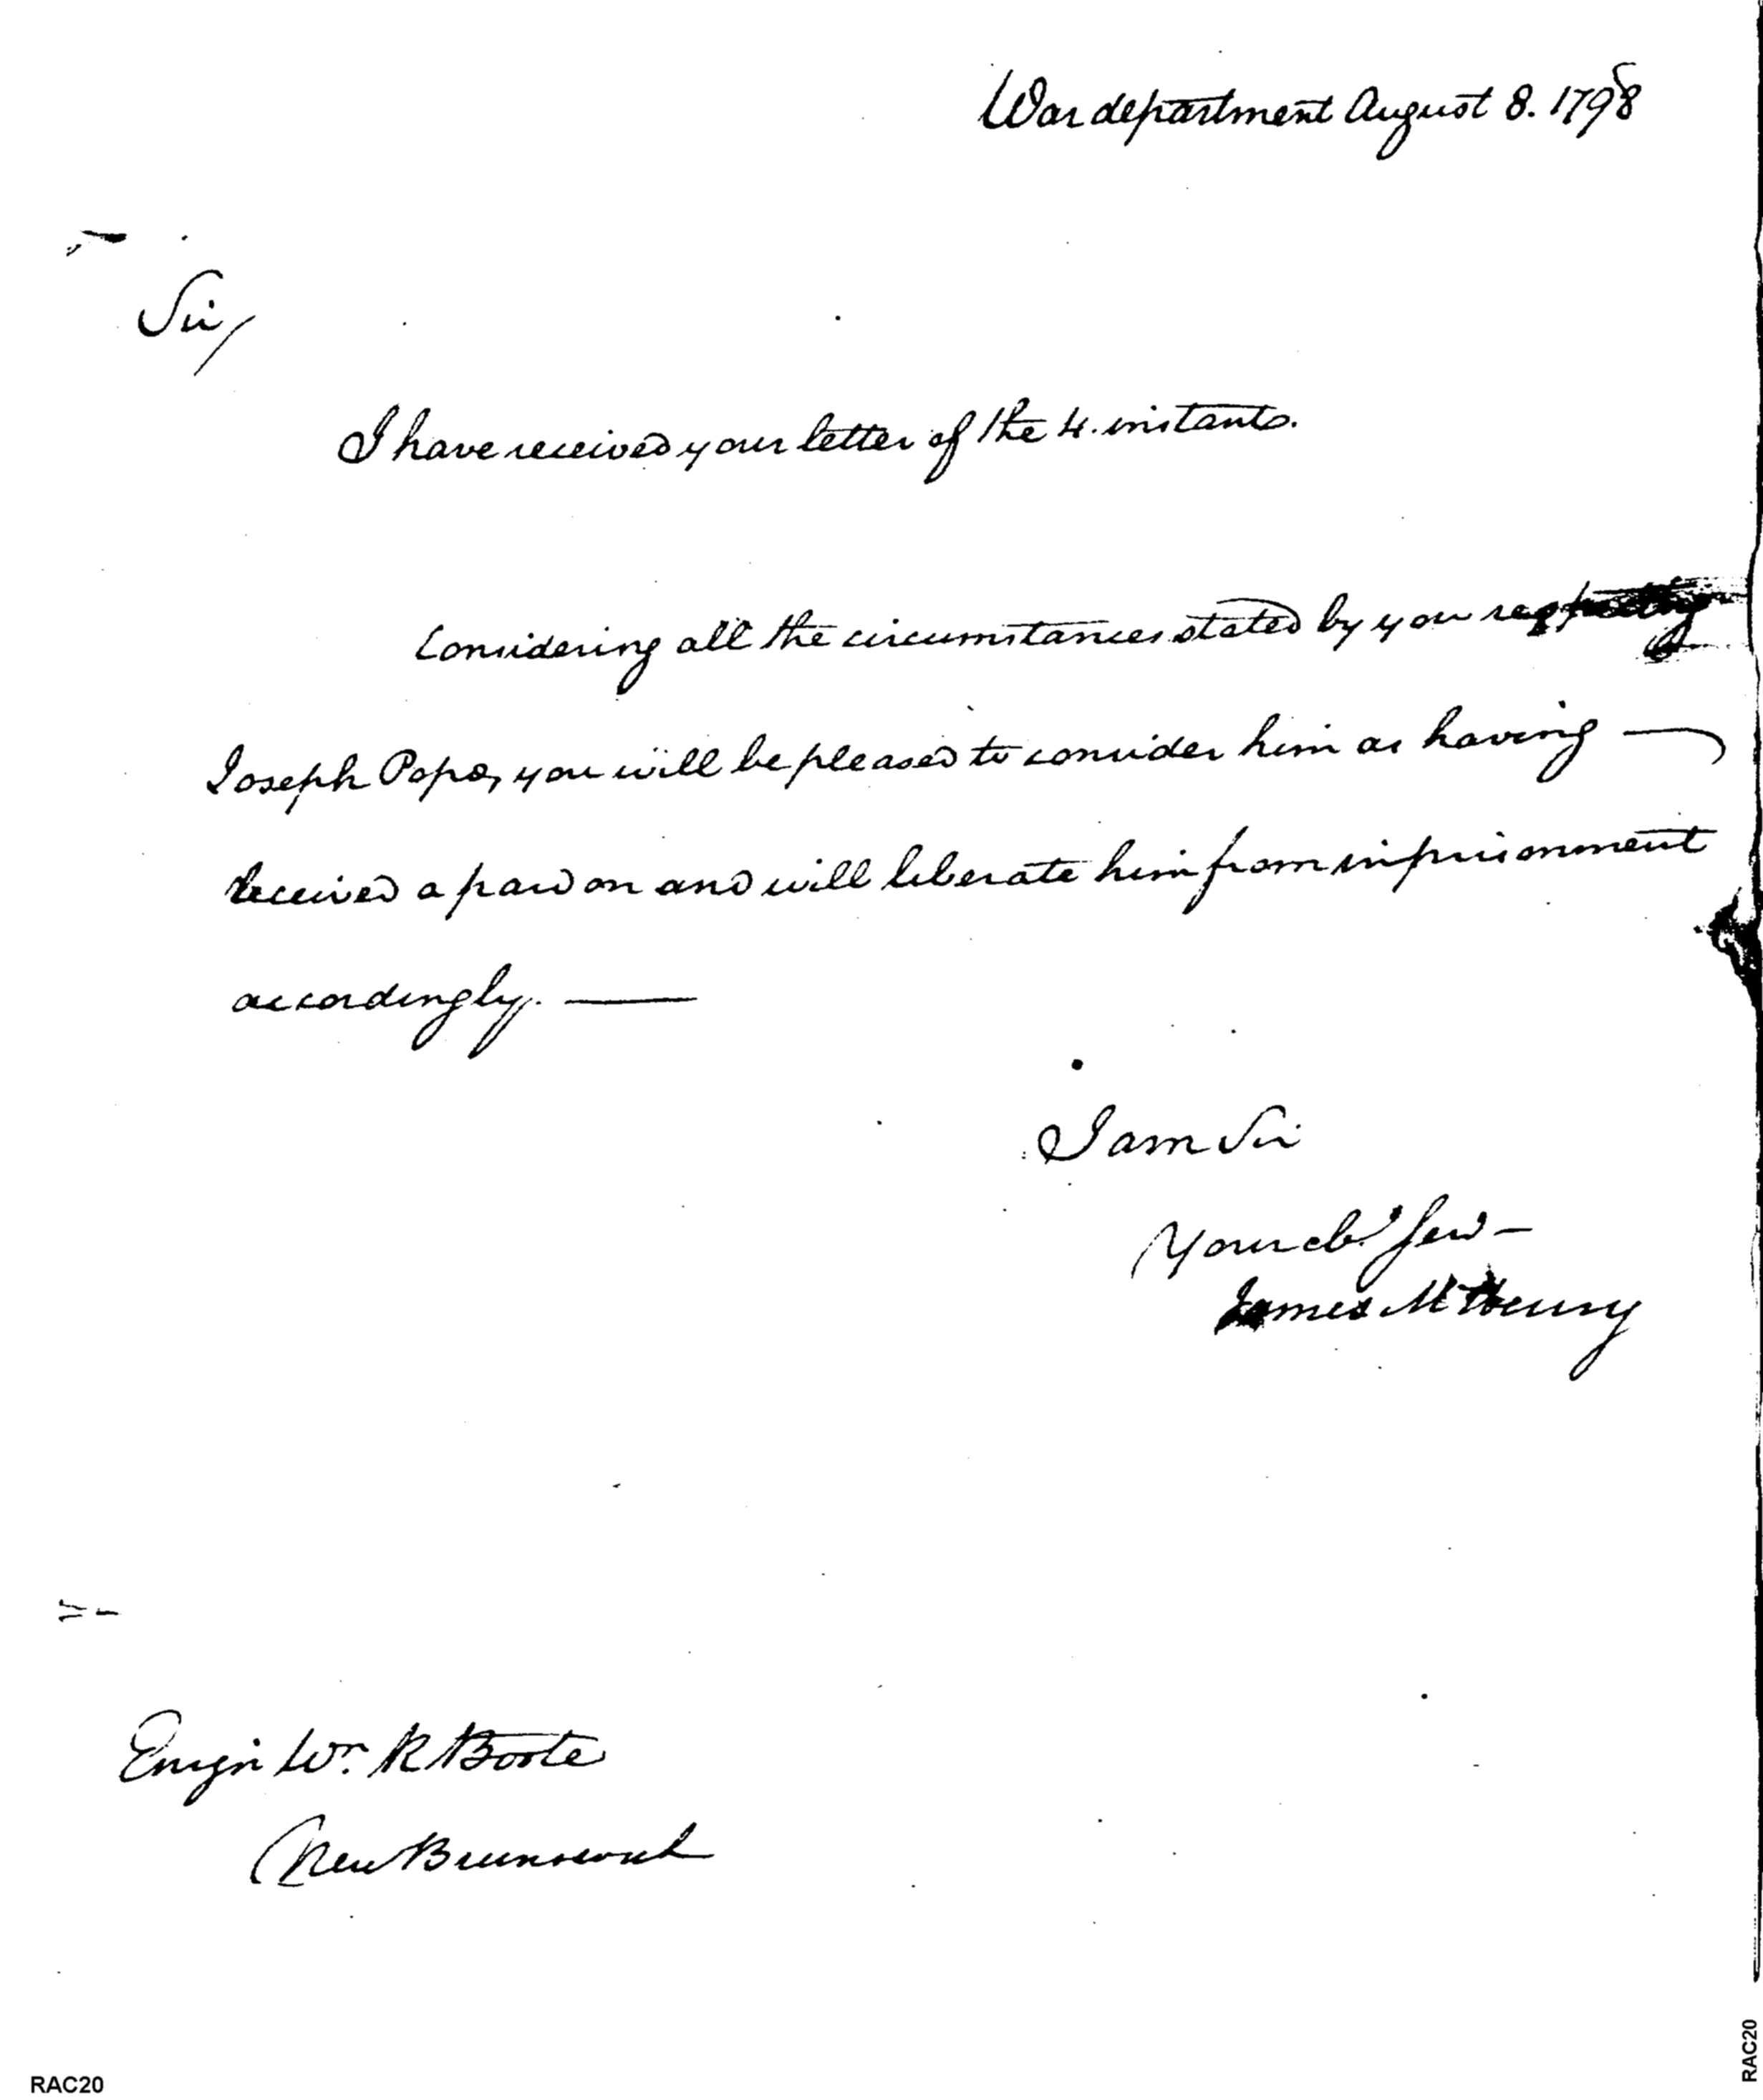 War department August 8. 1798
Sir/
I have received your letter of the 4. instant.
Considering all the circumstances stated by you respecting
Joseph Pope, you will be pleased to consider him as having —
received a pardon and will liberate him from imprisonment
accordingly. —
I am Sir
Your ob. Serv —
James McHenry
Ensign Wm. R Boote
New Brunswick
RAC20
RAC20